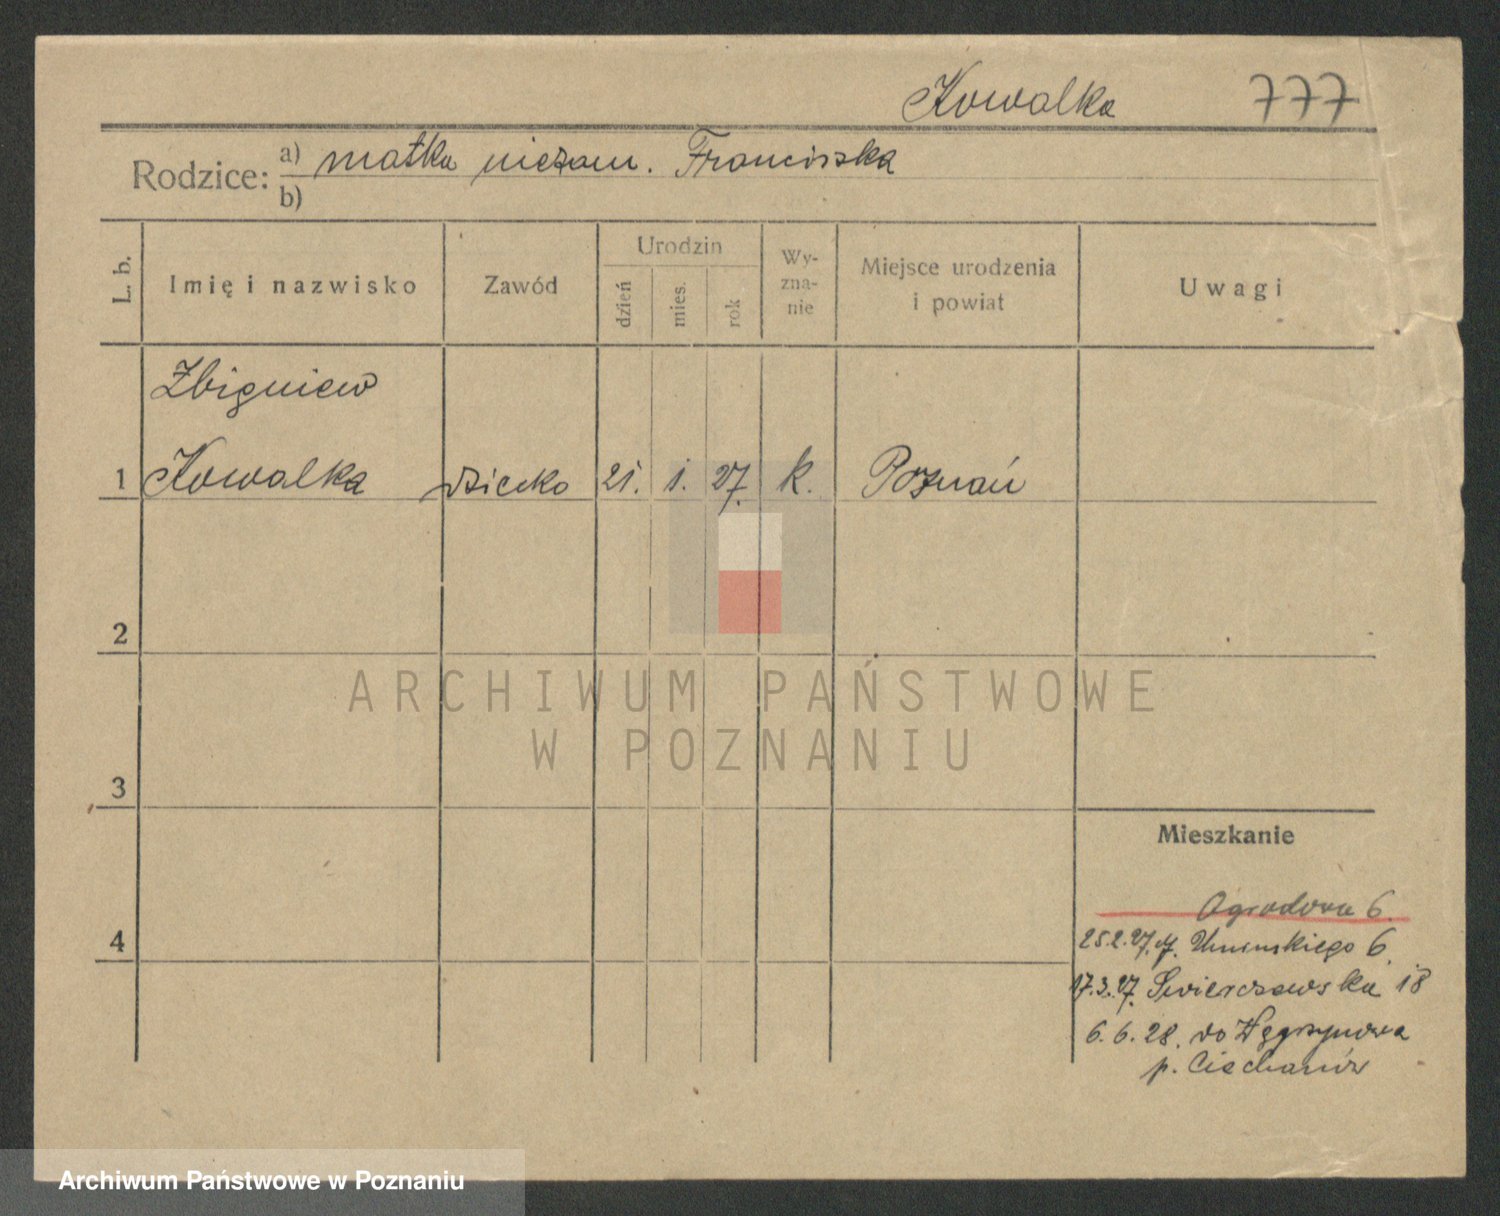 Kowalka 777
Rodzice: a) matka niezam. Franciszka
b)
L. b. Imię i nazwisko Zawód Urodzin dzień mies. rok Wy-zna-nie Miejsce urodzenia i powiat Uwagi
Zbigniew
1 Kowalka dziecko 21. 1. 27. k. Poznań
2
ARCHIWUM PAŃSTWOWE
W POZNANIU
3
Mieszkanie
Ogrodowa 6.
4
25.2.27. Umińskiego 6.
17.3.27. Swierczewska 18
6.6.28. do Węgrzynowa
p. Ciechanów
Archiwum Państwowe w Poznaniu